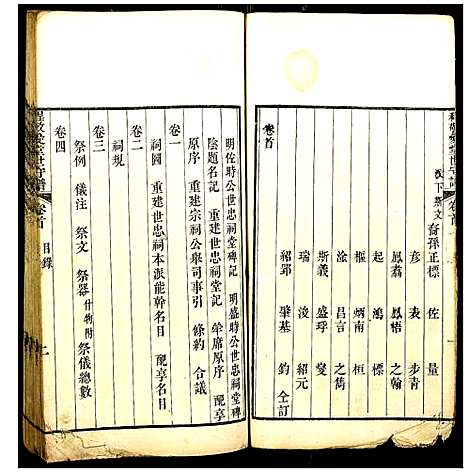 裔孫正標 佐 量
彥 表 步青
鳳翥 鳳梧 之翰
起 鴻 標
樞 炳南 桓
淦 昌言 之儁
斯義 盛琈 燮
瑞 紹元
紹郢 肇基 鈞 仝訂
卷首
明佐時公世忠祠堂碑記 明盛時公世忠祠堂碑
陰題名記 重建世忠祠堂記 席原序 配享
原序 重建宗祠公舉司事引 條約 合議
卷一
祠圖 重建世忠祠本派能幹名目 配享名目
卷二
祠規
卷三
祭例 儀注 祭文 祭器什物附 祭儀總數
卷四
世守譜 卷首 目錄